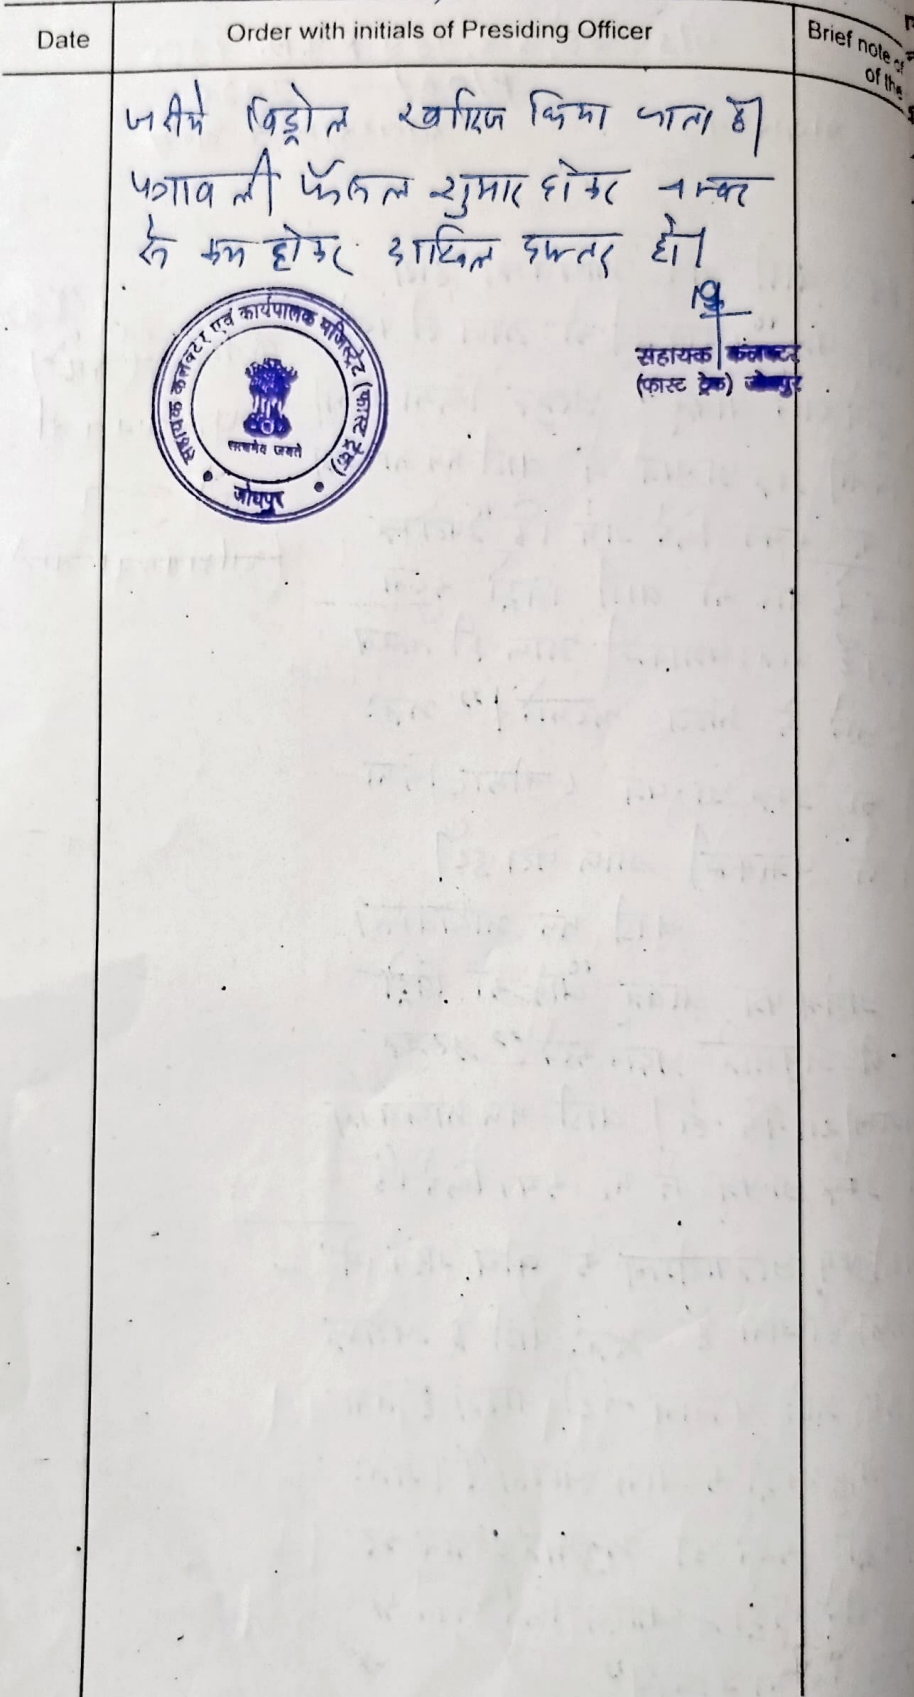 Date
Order with initials of Presiding Officer
Brief note of
of the
जरीये विड्रोल खारिज किया जाता है।
पत्रावली फैसल शुमार होकर नम्बर
से कम होकर दाखिल दफ्तर हो।
सहायक कलक्टर
(फास्ट ट्रेक) जोधपुर
सहायक कलक्टर एवं कार्यपालक मजिस्ट्रेट (फास्ट ट्रेक)
सत्यमेव जयते
जोधपुर